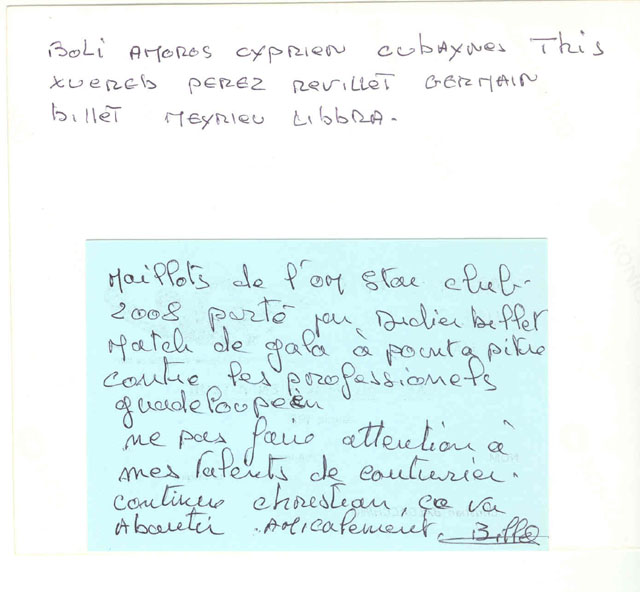 BOLI AMOROS CYPRIEN CUBAYNES THIS
XUEREB PEREZ REVILLET GERMAIN
billET MEYRIEU LIBBRA.
Maillots de l'om Star club.
2008 porté par Didier billet
Match de gala à pointapitre
contre les professionels
guadeloupeèn
ne pas faire attention à
mes talents de couturier.
continue chrestian, ça va
Aboutir Amicalement. Billet